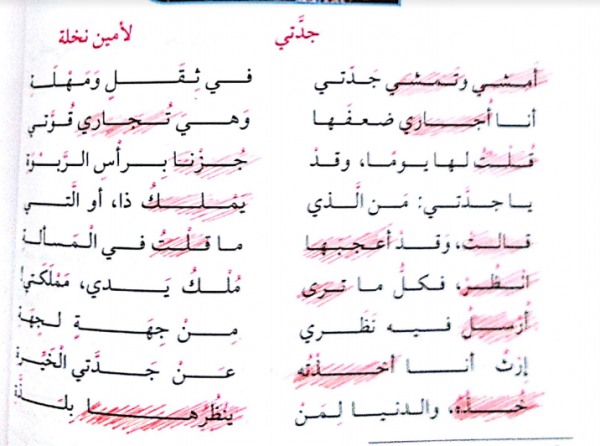 جدَّتي لأمين نخلة
أَمشي وتَمشي جَدّتي في ثِقَلٍ وَمَهْلَةِ
أنا أُجاري ضعفَها وَهيَ تُجاري قُوَّتي
قُلْتُ لها يومًا، وقدْ جُزْنا بِرأسِ الرَّبْوَةِ
يا جدَّتي: مَن الَّذي يَمْلكُ ذا، أو الَّتي
قالتْ، وَقدْ أعجبَها ما قلْتُ في الْمَسألةِ
انْظرْ، فكلُّ ما ترى مُلْكُ يَدي، مَمْلَكتي!
أُرْسلُ فيه نَظَري مِنْ جِهَةٍ لجِهَةِ
إرْثٌ أنا أخَذْتُه عَنْ جَدَّتي الْخَيِّرة
خُذْهُ، والدنيا لِمَنْ ينْظُرُها بِلَذَّةِ